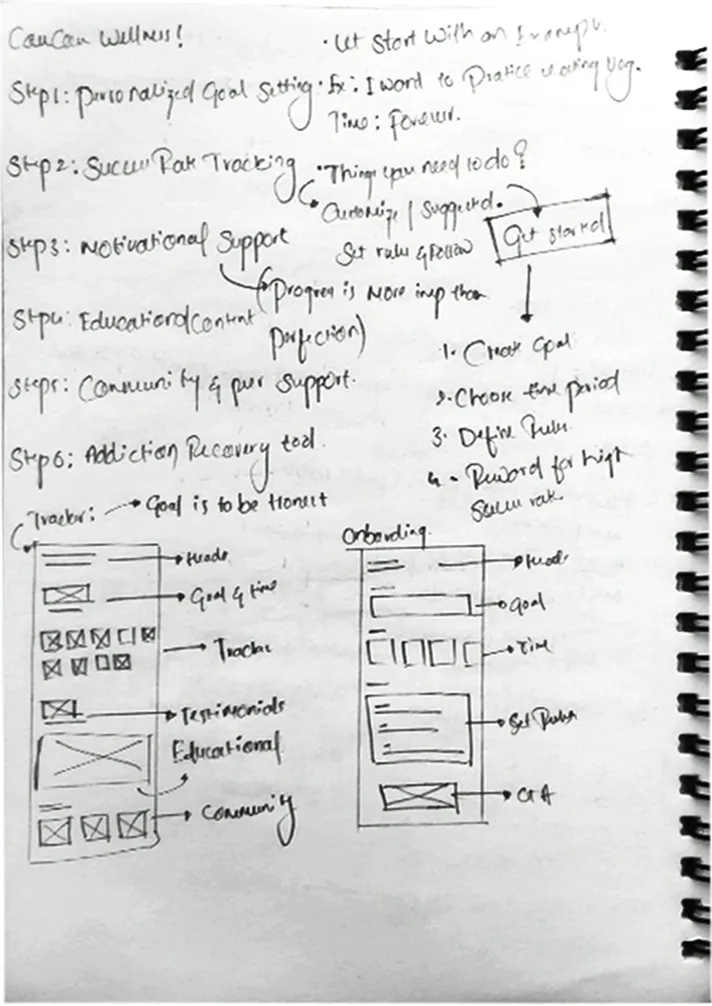 CanCan Wellness!
Step1: Personalized Goal Setting
Step2: Success Rate Tracking
Step3: Motivational Support
(Progress is more imp than
perfection)
Step4: Educational Content
Step5: Community & peer Support.
Step6: Addiction Recovery tool.
· Let Start With an Example.
· Ex: I want to Practice
Time: Forever.
· Things you need to do?
Customize / Suggested.
Set rules & Follow
Get started
1. Create Goal
2. Choose time period
3. Define Rules.
4. Reward for high
Success rate.
Tracker: → Goal is to be Honest
Header
Goal & time
Tracker
Testimonials
Educational
Community
Onboarding.
Header
Goal
Time
Set Rules
CTA